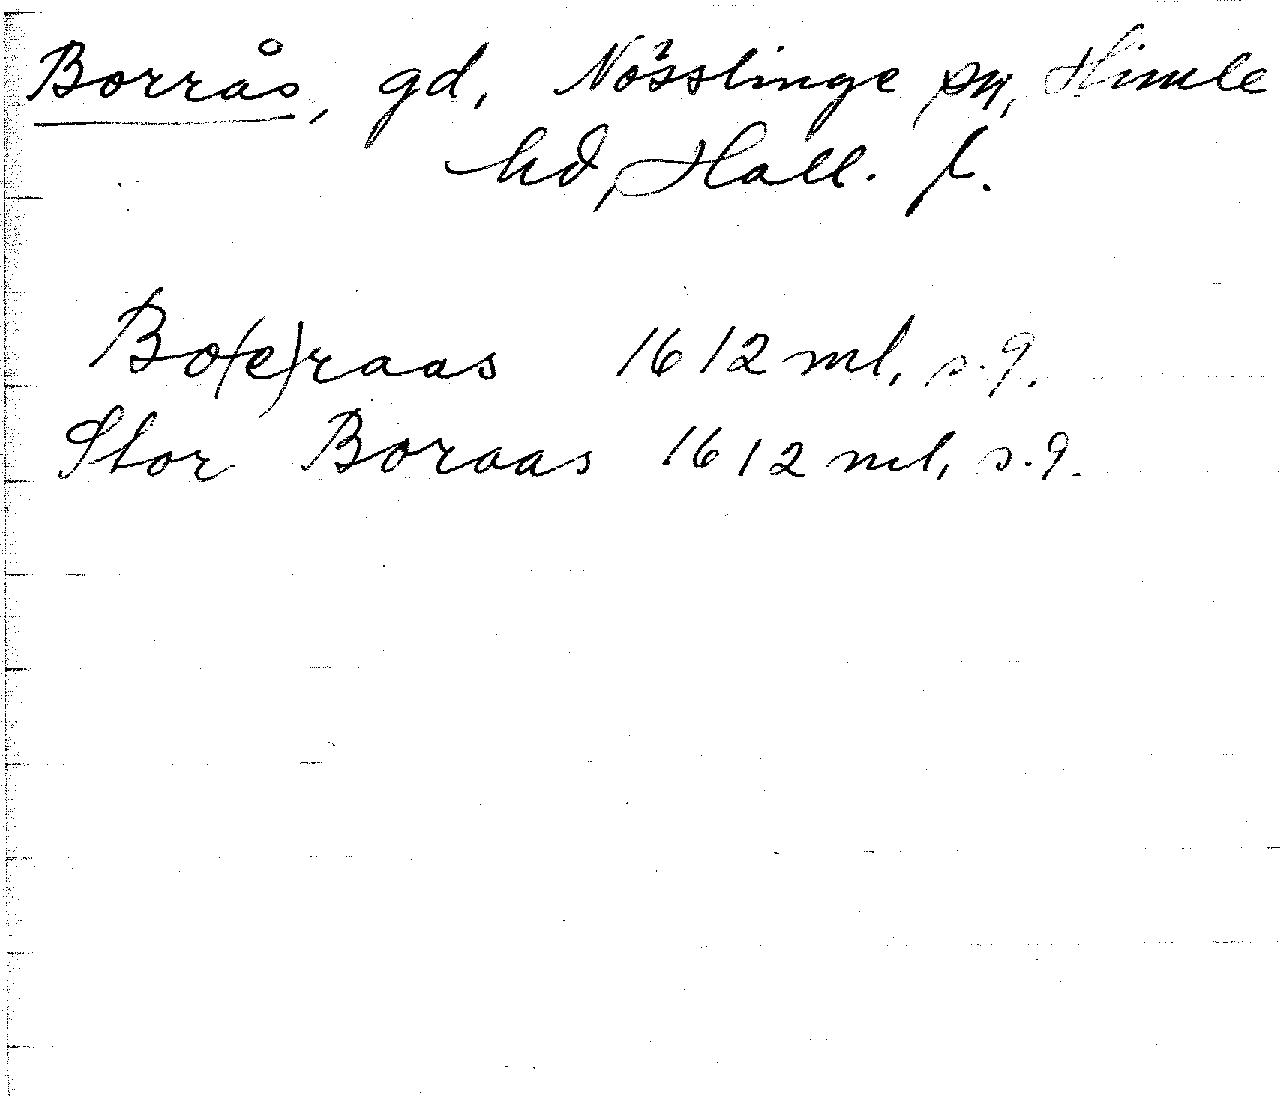 Borrås, gd, Nösslinge sn, Himle
hd, Hall. l.
Bo(e)raas 1612 ml, s. 9.
Stor Boraas 1612 ml, s. 9.